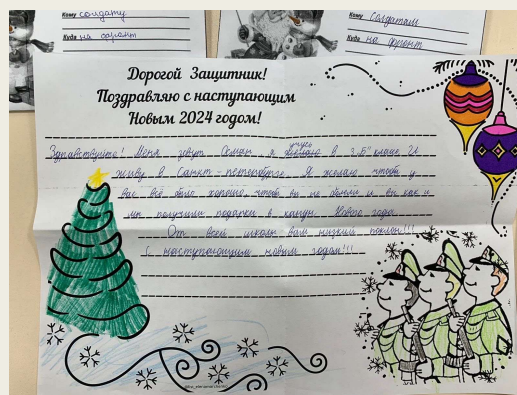 Кому солдату
Куда на фронт
Кому Солдатам
Куда на фронт
Дорогой Защитник!
Поздравляю с наступающим
Новым 2024 годом!
учусь
Здравствуйте! Меня зовут Семён я в 3 „Б" классе И
живу в Санкт-петенбурге. Я желаю чтобы у
вас всё было хорошо, чтоб вы не болели и вы как и
мы получили подарки в канун Нового года
От всей школы вам низкий поклон!!!
С наступающим новым годом!!!